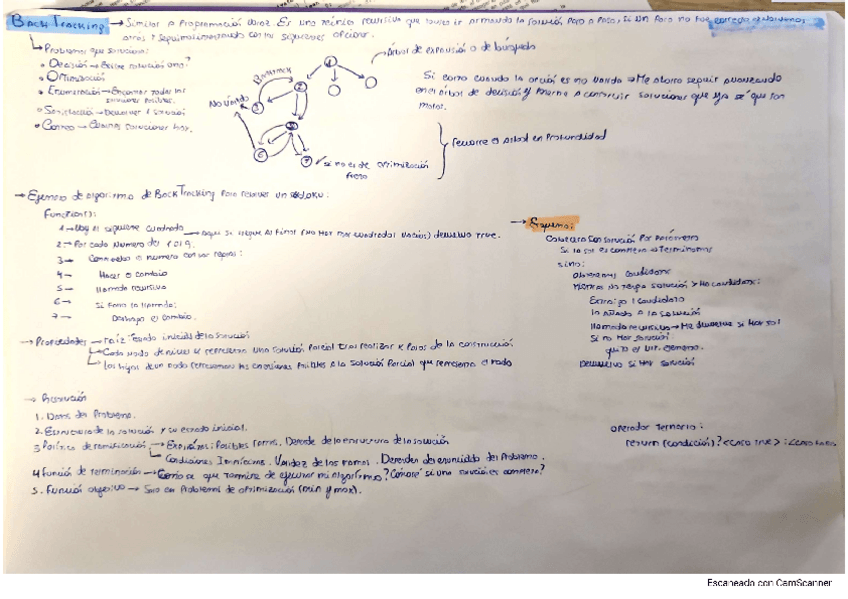 BackTracking → Similar a Programación voraz. Es una técnica recursiva que busca ir armando la solución paso a paso, si un paso no fue correcto volvemos
atrás y seguimos con las siguientes opciones.
Problemas que soluciona:
• Decisión → Existe solución única?
• Optimización
• Enumeración → Encontrar todas las soluciones posibles.
• Satisfacción → Devolver 1 solución
• Conteo → Cuantas soluciones hay.
Árbol de expansión o de búsqueda
BackTrack
No válido
1
2
3
6
7
✓ si no es de optimización
Recorre el Arbol en Profundidad
Si corto cuando la opción es no válida → Me ahorro seguir avanzando
en el árbol de decisión y ponerme a construir soluciones que ya sé que son
malas.
→ Ejemplo de algoritmo de BackTracking para resolver un sudoku:
Function():
1 → Voy al siguiente cuadrado → aquí si llegue al final (no hay más cuadrados vacíos) devuelvo true.
2 → Por cada numero del 1 al 9.
3 →
4 → Hacer el cambio
5 → llamada recursiva
6 → Si falla la llamada:
7 → Deshago el cambio.
→ Esquema:
Si la sol es completa → Terminamos
sino:
obtenemos candidatos
mientras no tenga solución y Ha candidatos:
Extraigo 1 candidato
lo añado a la solución
llamada recursiva → Me devuelve si Hay sol
Si no hay solución:
quito el ult. elemento.
Devuelvo si Hay solución
→ Propiedades → raíz: Estado inicial de la solución
Cada nodo de nivel k representa una solución parcial tras realizar k pasos de la construcción
los hijos de un nodo representan las extensiones posibles a la solución parcial que representa el nodo
→ Resolución
1. Datos del Problema.
2. Estructura de la solución y su estado inicial.
3 Política de ramificación → Explícitas: Posibles ramas. Depende de la estructura de la solución
Condiciones Implícitas. Validez de las ramas. Dependen del enunciado del Problema.
4 Función de terminación → Cómo se que termine de ejecutar mi algoritmo? Cómo sé si una solución es completa?
5. Función objetivo → Solo en Problemas de optimización (min y max).
Operador Ternario:
return (condición)? <caso true> : <caso false>
Escaneado con CamScanner